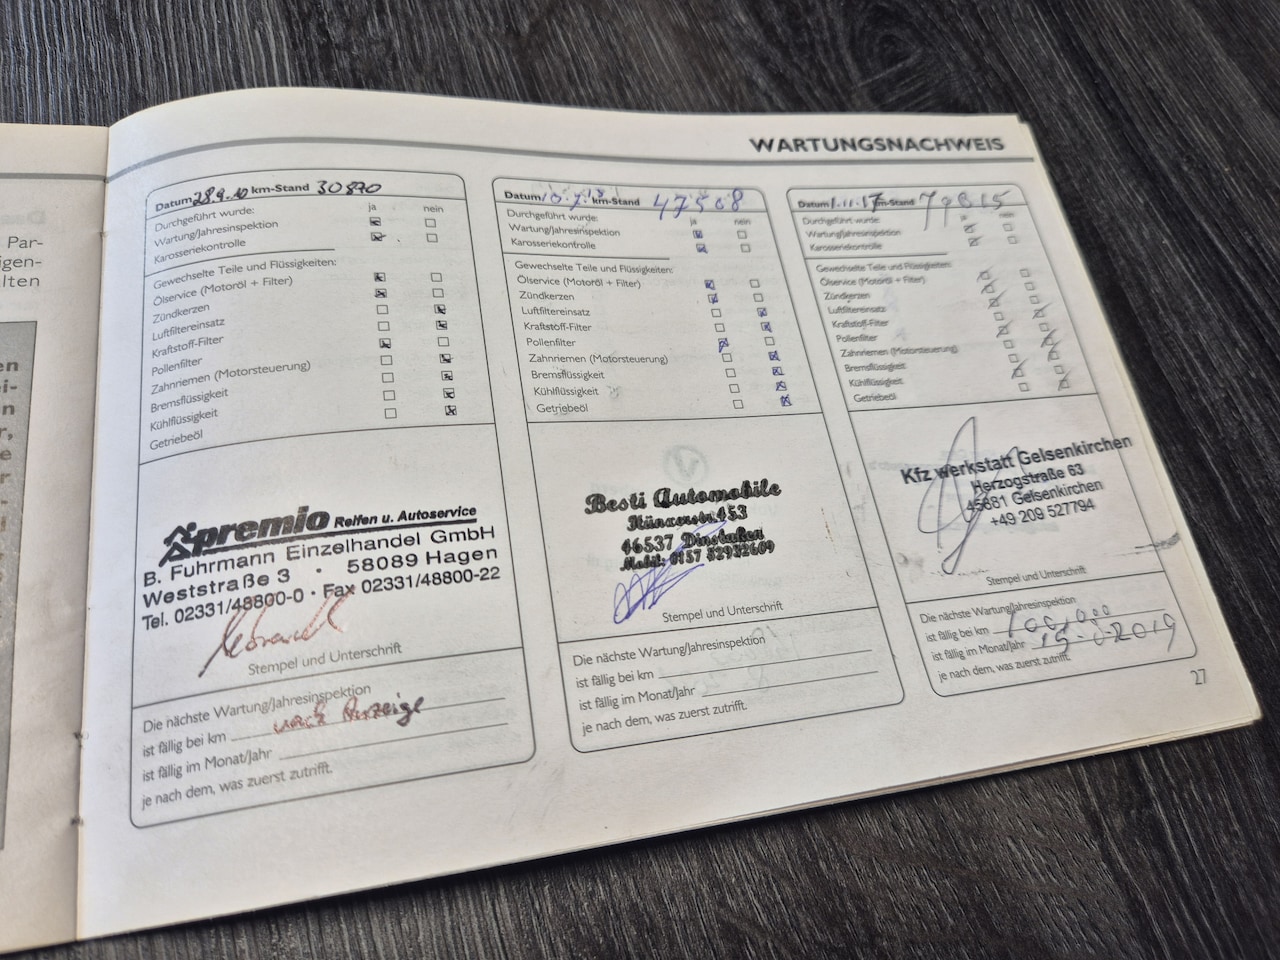 WARTUNGSNACHWEIS
Par-
igen-
lten
en
ei-
n
r,
e
Datum 28.9.10 km-Stand 30870
ja nein
Durchgeführt wurde:
Wartung/Jahresinspektion
Karosseriekontrolle
Gewechselte Teile und Flüssigkeiten:
Ölservice (Motoröl + Filter)
Zündkerzen
Luftfiltereinsatz
Kraftstoff-Filter
Pollenfilter
Zahnriemen (Motorsteuerung)
Bremsflüssigkeit
Kühlflüssigkeit
Getriebeöl
premio Reifen u. Autoservice
B. Fuhrmann Einzelhandel GmbH
Weststraße 3 · 58089 Hagen
Tel. 02331/48800-0 · Fax 02331/48800-22
Stempel und Unterschrift
Die nächste Wartung/Jahresinspektion
ist fällig bei km nach Anzeige
ist fällig im Monat/Jahr
je nach dem, was zuerst zutrifft.
Datum km-Stand 47508
ja nein
Durchgeführt wurde:
Wartung/Jahresinspektion
Karosseriekontrolle
Gewechselte Teile und Flüssigkeiten:
Ölservice (Motoröl + Filter)
Zündkerzen
Luftfiltereinsatz
Kraftstoff-Filter
Pollenfilter
Zahnriemen (Motorsteuerung)
Bremsflüssigkeit
Kühlflüssigkeit
Getriebeöl
Besti Automobile
46537 Dinslaken
Mobil: 0157 52932609
Stempel und Unterschrift
Die nächste Wartung/Jahresinspektion
ist fällig bei km
ist fällig im Monat/Jahr
je nach dem, was zuerst zutrifft.
Datum 1.11.17 km-Stand 79815
ja nein
Durchgeführt wurde:
Wartung/Jahresinspektion
Karosseriekontrolle
Gewechselte Teile und Flüssigkeiten:
Ölservice (Motoröl + Filter)
Zündkerzen
Luftfiltereinsatz
Kraftstoff-Filter
Pollenfilter
Zahnriemen (Motorsteuerung)
Bremsflüssigkeit
Kühlflüssigkeit
Getriebeöl
Kfz werkstatt Gelsenkirchen
Herzogstraße 63
45881 Gelsenkirchen
+49 209 527794
Stempel und Unterschrift
Die nächste Wartung/Jahresinspektion
ist fällig bei km 100,000
ist fällig im Monat/Jahr
je nach dem, was zuerst zutrifft.
27